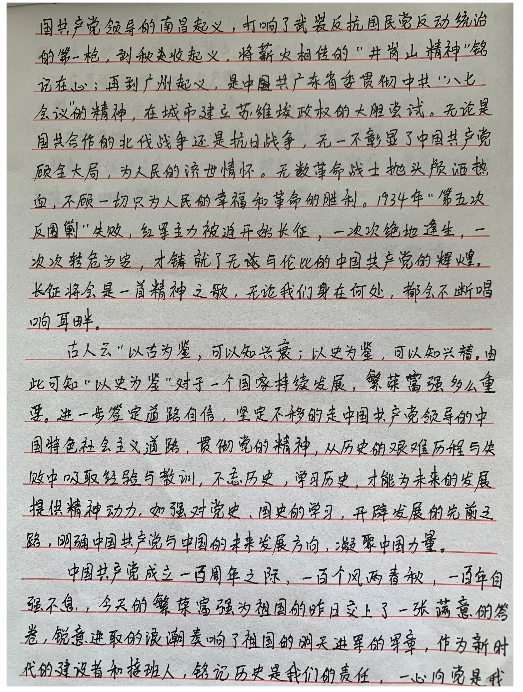 国共产党领导的南昌起义，打响了武装反抗国民党反动统治
的第一枪，到秋美收起义，将薪火相传的“井岗山精神”铭
记在心；再到广州起义，是中国共广东省委贯彻中共“八七
会议”的精神，在城市建立苏维埃政权的大胆尝试。无论是
国共合作的北伐战争还是抗日战争，无一不彰显了中国共产党
顾全大局，为人民的济世情怀。无数革命战士抛头颅洒热
血，不顾一切只为人民的幸福和革命的胜利。1934年“第五次
反围剿”失败，红军主力被迫开始长征，一次次绝地逢生，一
次次转危为安，才铸就了无法与伦比的中国共产党的辉煌。
长征将会是一首精神之歌，无论我们身在何处，都会不断唱
响耳畔。
古人云“以古为鉴，可以知兴衰；以史为鉴，可以知兴替。由
此可知“以史为鉴”对于一个国家持续发展，繁荣富强多么重
要。进一步坚定道路自信，坚定不移的走中国共产党领导的中
国特色社会主义道路，贯彻党的精神，从历史的艰难历程与失
败中吸取经验与教训，不忘历史，学习历史，才能为未来的发展
提供精神动力，加强对党史、国史的学习，开辟发展的先前之
路，明确中国共产党与中国的未来发展方向，凝聚中国力量。
中国共产党成立一百周年之际，一百个风雨春秋，一百年自
强不息，今天的繁荣富强为祖国的昨日交上了一张满意的答
卷，锐意进取的浪潮奏响了祖国的明天进军的军章，作为新时
代的建设者和接班人，铭记历史是我们的责任，一心向党是我